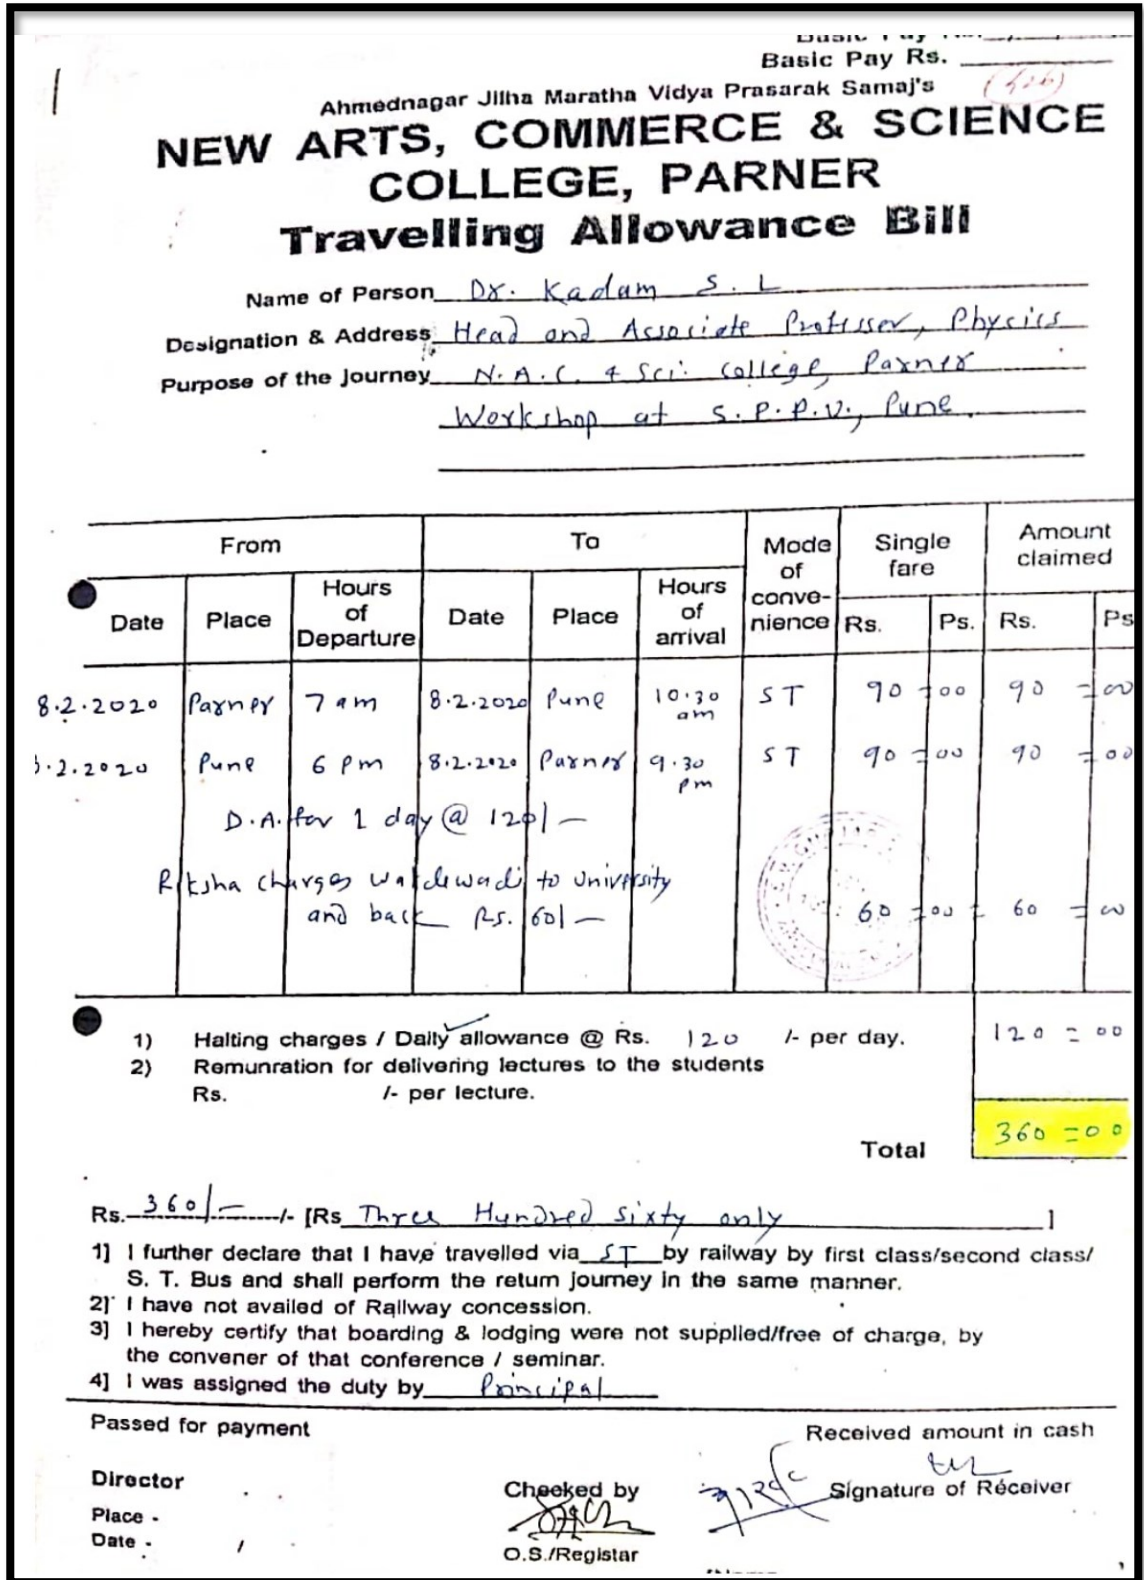 Basic Pay Rs.
Ahmednagar Jilha Maratha Vidya Prasarak Samaj's
NEW ARTS, COMMERCE & SCIENCE
COLLEGE, PARNER
Travelling Allowance Bill
Name of Person Dr. Kadam S. L
Designation & Address Head and Associate Professor, Physics
Purpose of the Journey N.A.C. & Sci. College, Parner
Workshop at S.P.P.U., Pune.
From To Mode of conve-nience Single fare Amount claimed
Date Place Hours of Departure Date Place Hours of arrival Rs. Ps. Rs. Ps
8.2.2020 Parner 7 am 8.2.2020 Pune 10.30 am ST 90 = 00 90 = 00
.2.2020 Pune 6 Pm 8.2.2020 Parner 9.30 pm ST 90 = 00 90 = 00
D.A. for 1 day @ 120/-
Riksha charges Wakdewadi to University
and back Rs. 60/- 60 = 00 = 60 = 00
1) Halting charges / Daily allowance @ Rs. 120 /- per day. 120 = 00
2) Remunration for delivering lectures to the students
Rs. /- per lecture.
Total 360 = 00
Rs. 360/- /- [Rs Three Hundred Sixty only ]
1] I further declare that I have travelled via ST by railway by first class/second class/
S. T. Bus and shall perform the return journey in the same manner.
2] I have not availed of Railway concession.
3] I hereby certify that boarding & lodging were not supplied/free of charge, by
the convener of that conference / seminar.
4] I was assigned the duty by Principal
Passed for payment Received amount in cash
Director Checked by Signature of Receiver
Place -
Date - O.S./Registar